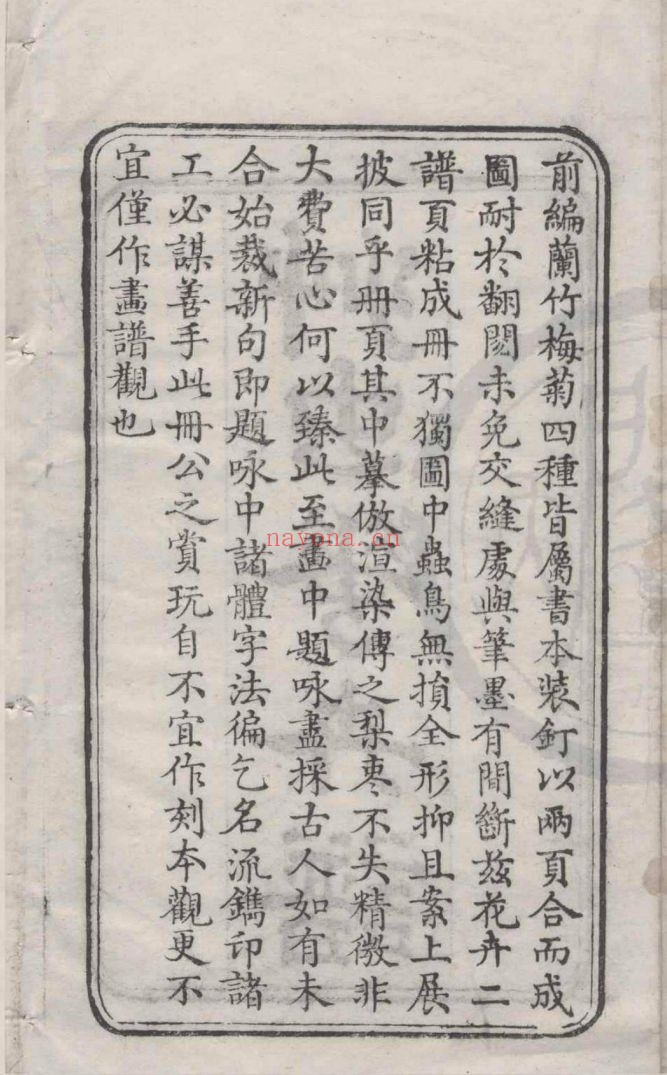 前編蘭竹梅菊四種皆屬書本裝釘以兩頁合而成
圖耐於翻閱未免交縫處與筆墨有間斷茲花卉二
譜頁粘成冊不獨圖中蟲鳥無損全形抑且案上展
披同乎冊頁其中摹倣渲染傳之梨棗不失精微非
大費苦心何以臻此至畫中題咏盡採古人如有未
合始裁新句即題咏中諸體字法徧乞名流鐫印諸
工必謀善手此冊公之賞玩自不宜作刻本觀更不
宜僅作畫譜觀也
nayona.cn